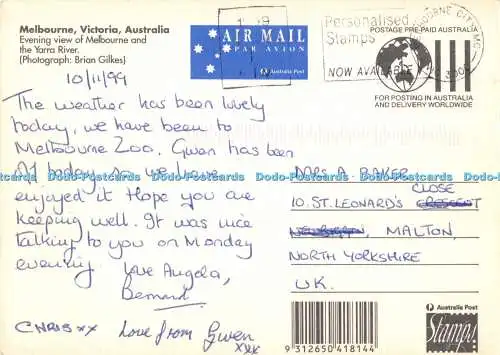 Melbourne, Victoria, Australia
Evening view of Melbourne and
the Yarra River.
(Photograph: Brian Gilkes)
10/11/99
The weather has been lovely
today, we have been to
Melbourne Zoo. Gwen has been
enjoyed it Hope you are
keeping well. It was nice
talking to you on Monday
evening. Love Angela,
Bernard.
CHRIS xx Love from Gwen
xxx
AIR MAIL
PAR AVION
Australia Post
Personalised
Stamps
NOW AVAILABLE
POSTAGE PRE-PAID AUSTRALIA
FOR POSTING IN AUSTRALIA
AND DELIVERY WORLDWIDE
MRS A BAKER
CLOSE
10. ST. LEONARD'S
MALTON,
NORTH YORKSHIRE
U.K.
Australia Post
Stamps!
9 312650 418144
Dodo-Postcards Dodo-Postcards Dodo-Postcards Dodo-Postcards Dodo-Postcards